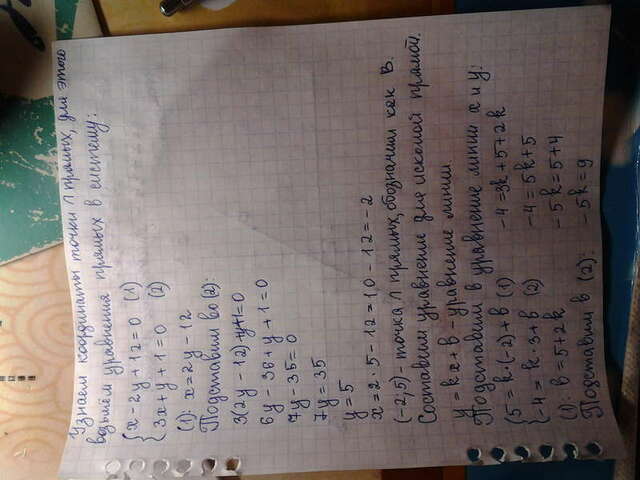 Узнаем координаты точки ∩ прямых, для этого
возьмём уравнения прямых в систему:
{x - 2y + 12 = 0 (1)
{3x + y + 1 = 0 (2)
(1): x = 2y - 12
Подставим во (2):
3(2y - 12) + y + 1 = 0
6y - 36 + y + 1 = 0
7y - 35 = 0
7y = 35
y = 5
x = 2·5 - 12 = 10 - 12 = -2
(-2,5) - точка ∩ прямых, обозначим как В.
Составим уравнение для искомой прямой.
y = kx + b - уравнение линии.
Подставим в уравнение линии x и y:
{5 = k·(-2) + b (1)
{-4 = k·3 + b (2)
(1): b = 5 + 2k
Подставим в (2):
-4 = 3k + 5 + 2k
-4 = 5k + 5
-5k = 5 + 4
-5k = 9